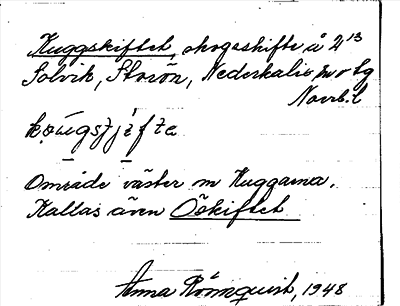 Kuggskiftet, skogsskifte å 2¹³
Solvik, Storön, Nederkalix sn o tg
Norrb. l
Område väster om Kuggarna.
Kallas även Öskiftet
Anna Rönnquist, 1948